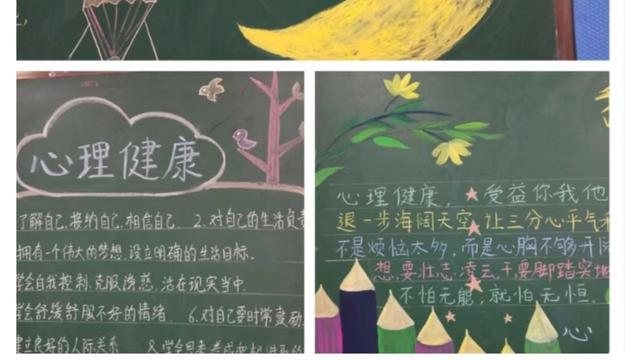 心理健康
了解自己.接纳自己.相信自己. 2.对自己的生活负责
拥有一个伟大的梦想.设立明确的生活目标.
学会自我控制.克服诱惑.活在现实当中.
学会舒缓舒服不好的情绪. 6.对自己要时常鼓励
建立良好的人际关系 8.学会思考
心理健康, 受益你我他
退一步海阔天空.让三分心平气和
不是烦恼太多,而是心胸不够开阔
想要壮志凌云,干要脚踏实地
不怕无能,就怕无恒.
心